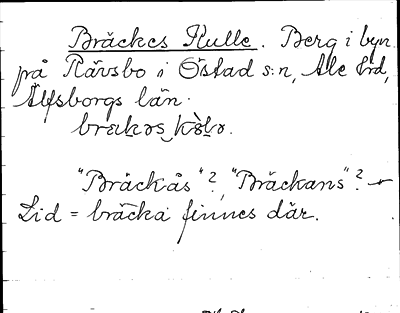 Bräckes Kulle. Berg i byn
på Rävsbo i Östad s:n, Ale hrd,
Älfsborgs län.
"Bräckås"? "Bräckans"?
Lid = bräcka finnes där.